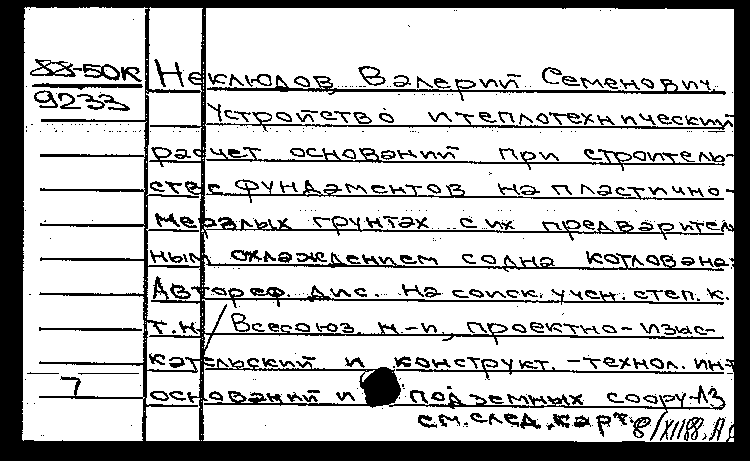 88-50К Неклюдов, Валерий Семенович.
9233 Устройство и теплотехнический
расчет оснований при строитель-
стве фундаментов на пластично-
мерзлых грунтах с их предварител
ным охлаждением со дна котлована:
Автореф. дис. на соиск. учен. степ. к.
т.н. Всесоюз. н.-и., проектно-изыс-
кательский и конструкт.-технол. ин-т
7 оснований и подземных соору-
см. след. карт.